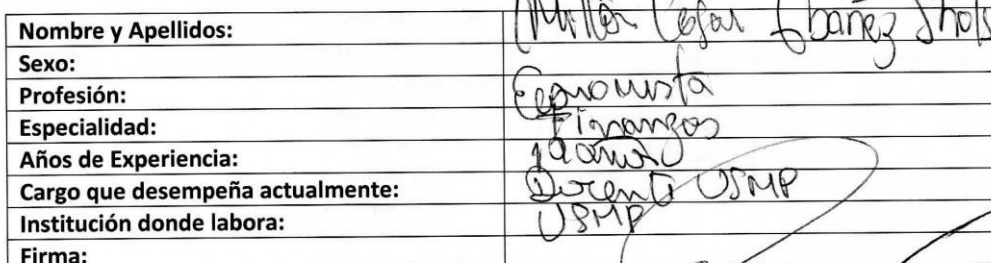 Nombre y Apellidos: César Ibañez
Sexo:
Profesión: Economista
Especialidad: Finanzas
Años de Experiencia: años
Cargo que desempeña actualmente: Docente USMP
Institución donde labora: USMP
Firma: